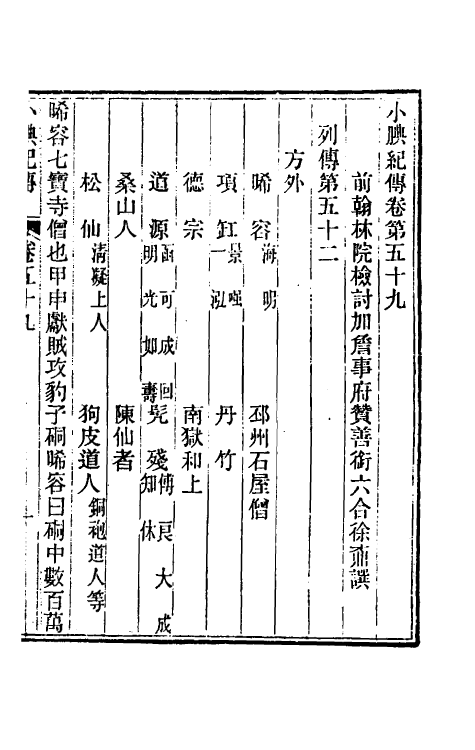 小腆紀傳卷第五十九
前翰林院檢討加詹事府贊善銜六合徐鼒譔
列傳第五十二
方外
晞容 海明 邳州石屋僧
項缸 一泓 丹竹
德宗 南獄和上
道源 函可 成回 明光 如壽 髡殘 傅良 大成 知休
桑山人 陳仙者
松仙 清凝上人 狗皮道人 銅袍道人等
晞容七寶寺僧也甲申獻賊攻豹子硐晞容曰硐中數百萬
小腆紀傳 卷五十九